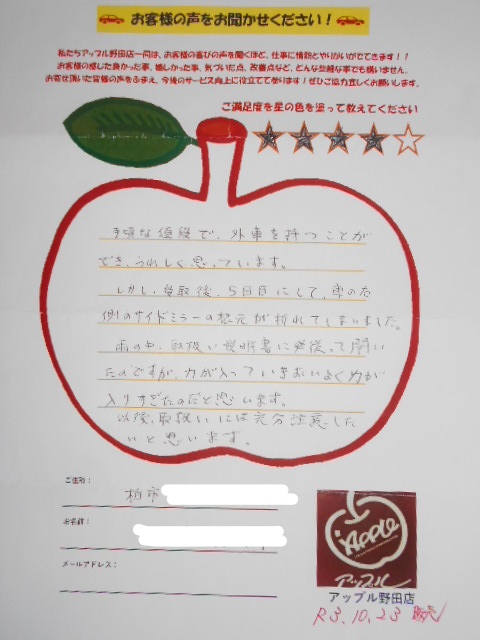 お客様の声をお聞かせください!
私たちアップル野田店一同は、お客様の喜びの声を聞くほど、仕事に情熱とやりがいがでてきます!!
お客様の感じた良かった事、嬉しかった事、気づいた点、改善点など、どんな些細な事でも構いません。
お寄せ頂いた皆様の声をふまえ、今後のサービス向上に役立てて参ります!ぜひご協力宜しくお願いします。
ご満足度を星の色を塗って教えてください
手頃な値段で、外車を持つことが
でき、うれしく思っています。
しかし、受取後、5日目にして、車の右
側のサイドミラーの根元が折れてしまいました。
雨の中、取扱い説明書に従って開い
たのですが、力が入っていきおいよく力が
入りすぎたのだと思います。
以後、取扱いには充分注意した
いと思います。
ご住所:
柏市
お名前:
メールアドレス:
APPLE
アップル
アップル野田店
R3.10.23